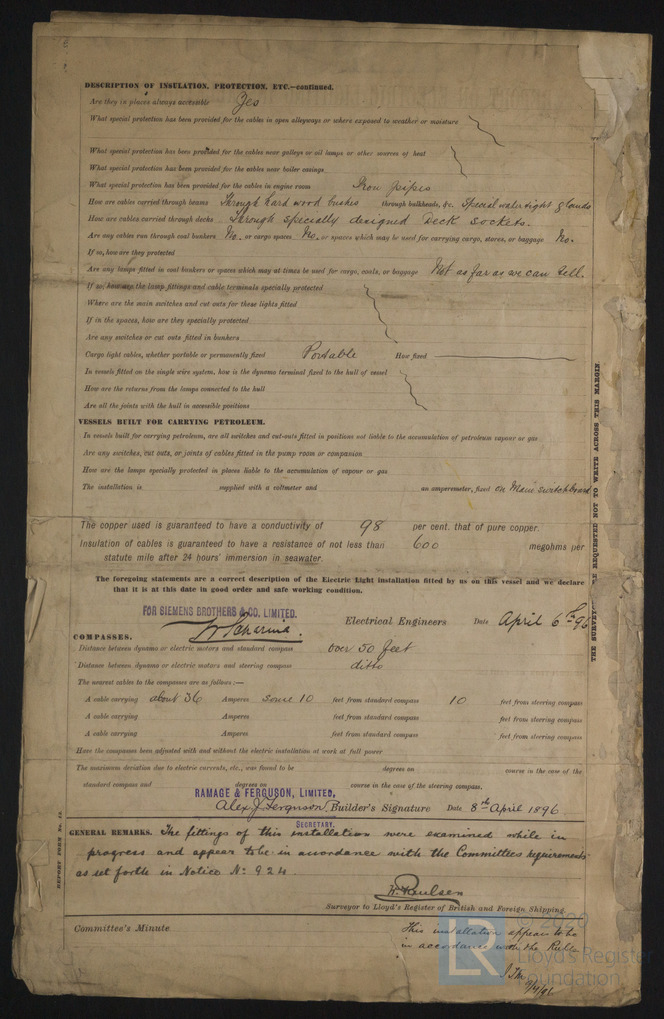 DESCRIPTION OF INSULATION, PROTECTION, ETC.—continued.
Are they in places always accessible Yes
What special protection has been provided for the cables in open alleyways or where exposed to weather or moisture
What special protection has been provided for the cables near galleys or oil lamps or other sources of heat
What special protection has been provided for the cables near boiler casings
What special protection has been provided for the cables in engine room Iron pipes
How are cables carried through beams Through hard wood bushes through bulkheads, &c. Special water tight glands
How are cables carried through decks Through specially designed Deck sockets.
Are any cables run through coal bunkers No. or cargo spaces No. or spaces which may be used for carrying cargo, stores, or baggage No.
If so, how are they protected
Are any lamps fitted in coal bunkers or spaces which may at times be used for cargo, coals, or baggage Not as far as we can tell.
If so, how are the lamp fittings and cable terminals specially protected
Where are the main switches and cut outs for these lights fitted
If in the spaces, how are they specially protected
Are any switches or cut outs fitted in bunkers
Cargo light cables, whether portable or permanently fixed Portable How fixed
In vessels fitted on the single wire system, how is the dynamo terminal fixed to the hull of vessel
How are the returns from the lamps connected to the hull
Are all the joints with the hull in accessible positions
VESSELS BUILT FOR CARRYING PETROLEUM.
In vessels built for carrying petroleum, are all switches and cut-outs fitted in positions not liable to the accumulation of petroleum vapour or gas
Are any switches, cut outs, or joints of cables fitted in the pump room or companion
How are the lamps specially protected in places liable to the accumulation of vapour or gas
The installation is supplied with a voltmeter and an amperemeter, fixed on Main switchboard
The copper used is guaranteed to have a conductivity of 98 per cent. that of pure copper.
Insulation of cables is guaranteed to have a resistance of not less than 600 megohms per
statute mile after 24 hours' immersion in seawater.
The foregoing statements are a correct description of the Electric Light installation fitted by us on this vessel and we declare
that it is at this date in good order and safe working condition.
FOR SIEMENS BROTHERS & CO. LIMITED.
Electrical Engineers Date April 6th 96
COMPASSES.
Distance between dynamo or electric motors and standard compass over 50 feet
Distance between dynamo or electric motors and steering compass ditto
The nearest cables to the compasses are as follows:—
A cable carrying about 36 Amperes some 10 feet from standard compass 10 feet from steering compass
A cable carrying Amperes feet from standard compass feet from steering compass
A cable carrying Amperes feet from standard compass feet from steering compass
Have the compasses been adjusted with and without the electric installation at work at full power
The maximum deviation due to electric currents, etc., was found to be degrees on course in the case of the
standard compass and degrees on course in the case of the steering compass.
RAMAGE & FERGUSON, LIMITED,
Alex J. Ferguson, Builder's Signature Date 8th April 1896
SECRETARY.
GENERAL REMARKS. The fittings of this installation were examined while in
progress and appear to be in accordance with the Committees requirements
as set forth in Notice No 924.
W. Paulsen
Surveyor to Lloyd's Register of British and Foreign Shipping.
Committee's Minute
This installation appears to be
in accordance with the Rules
9/4/96
REPORT FORM No. 13.
THE SURVEYORS ARE REQUESTED NOT TO WRITE ACROSS THIS MARGIN.
LR
© 2020
Lloyd's Register
Foundation